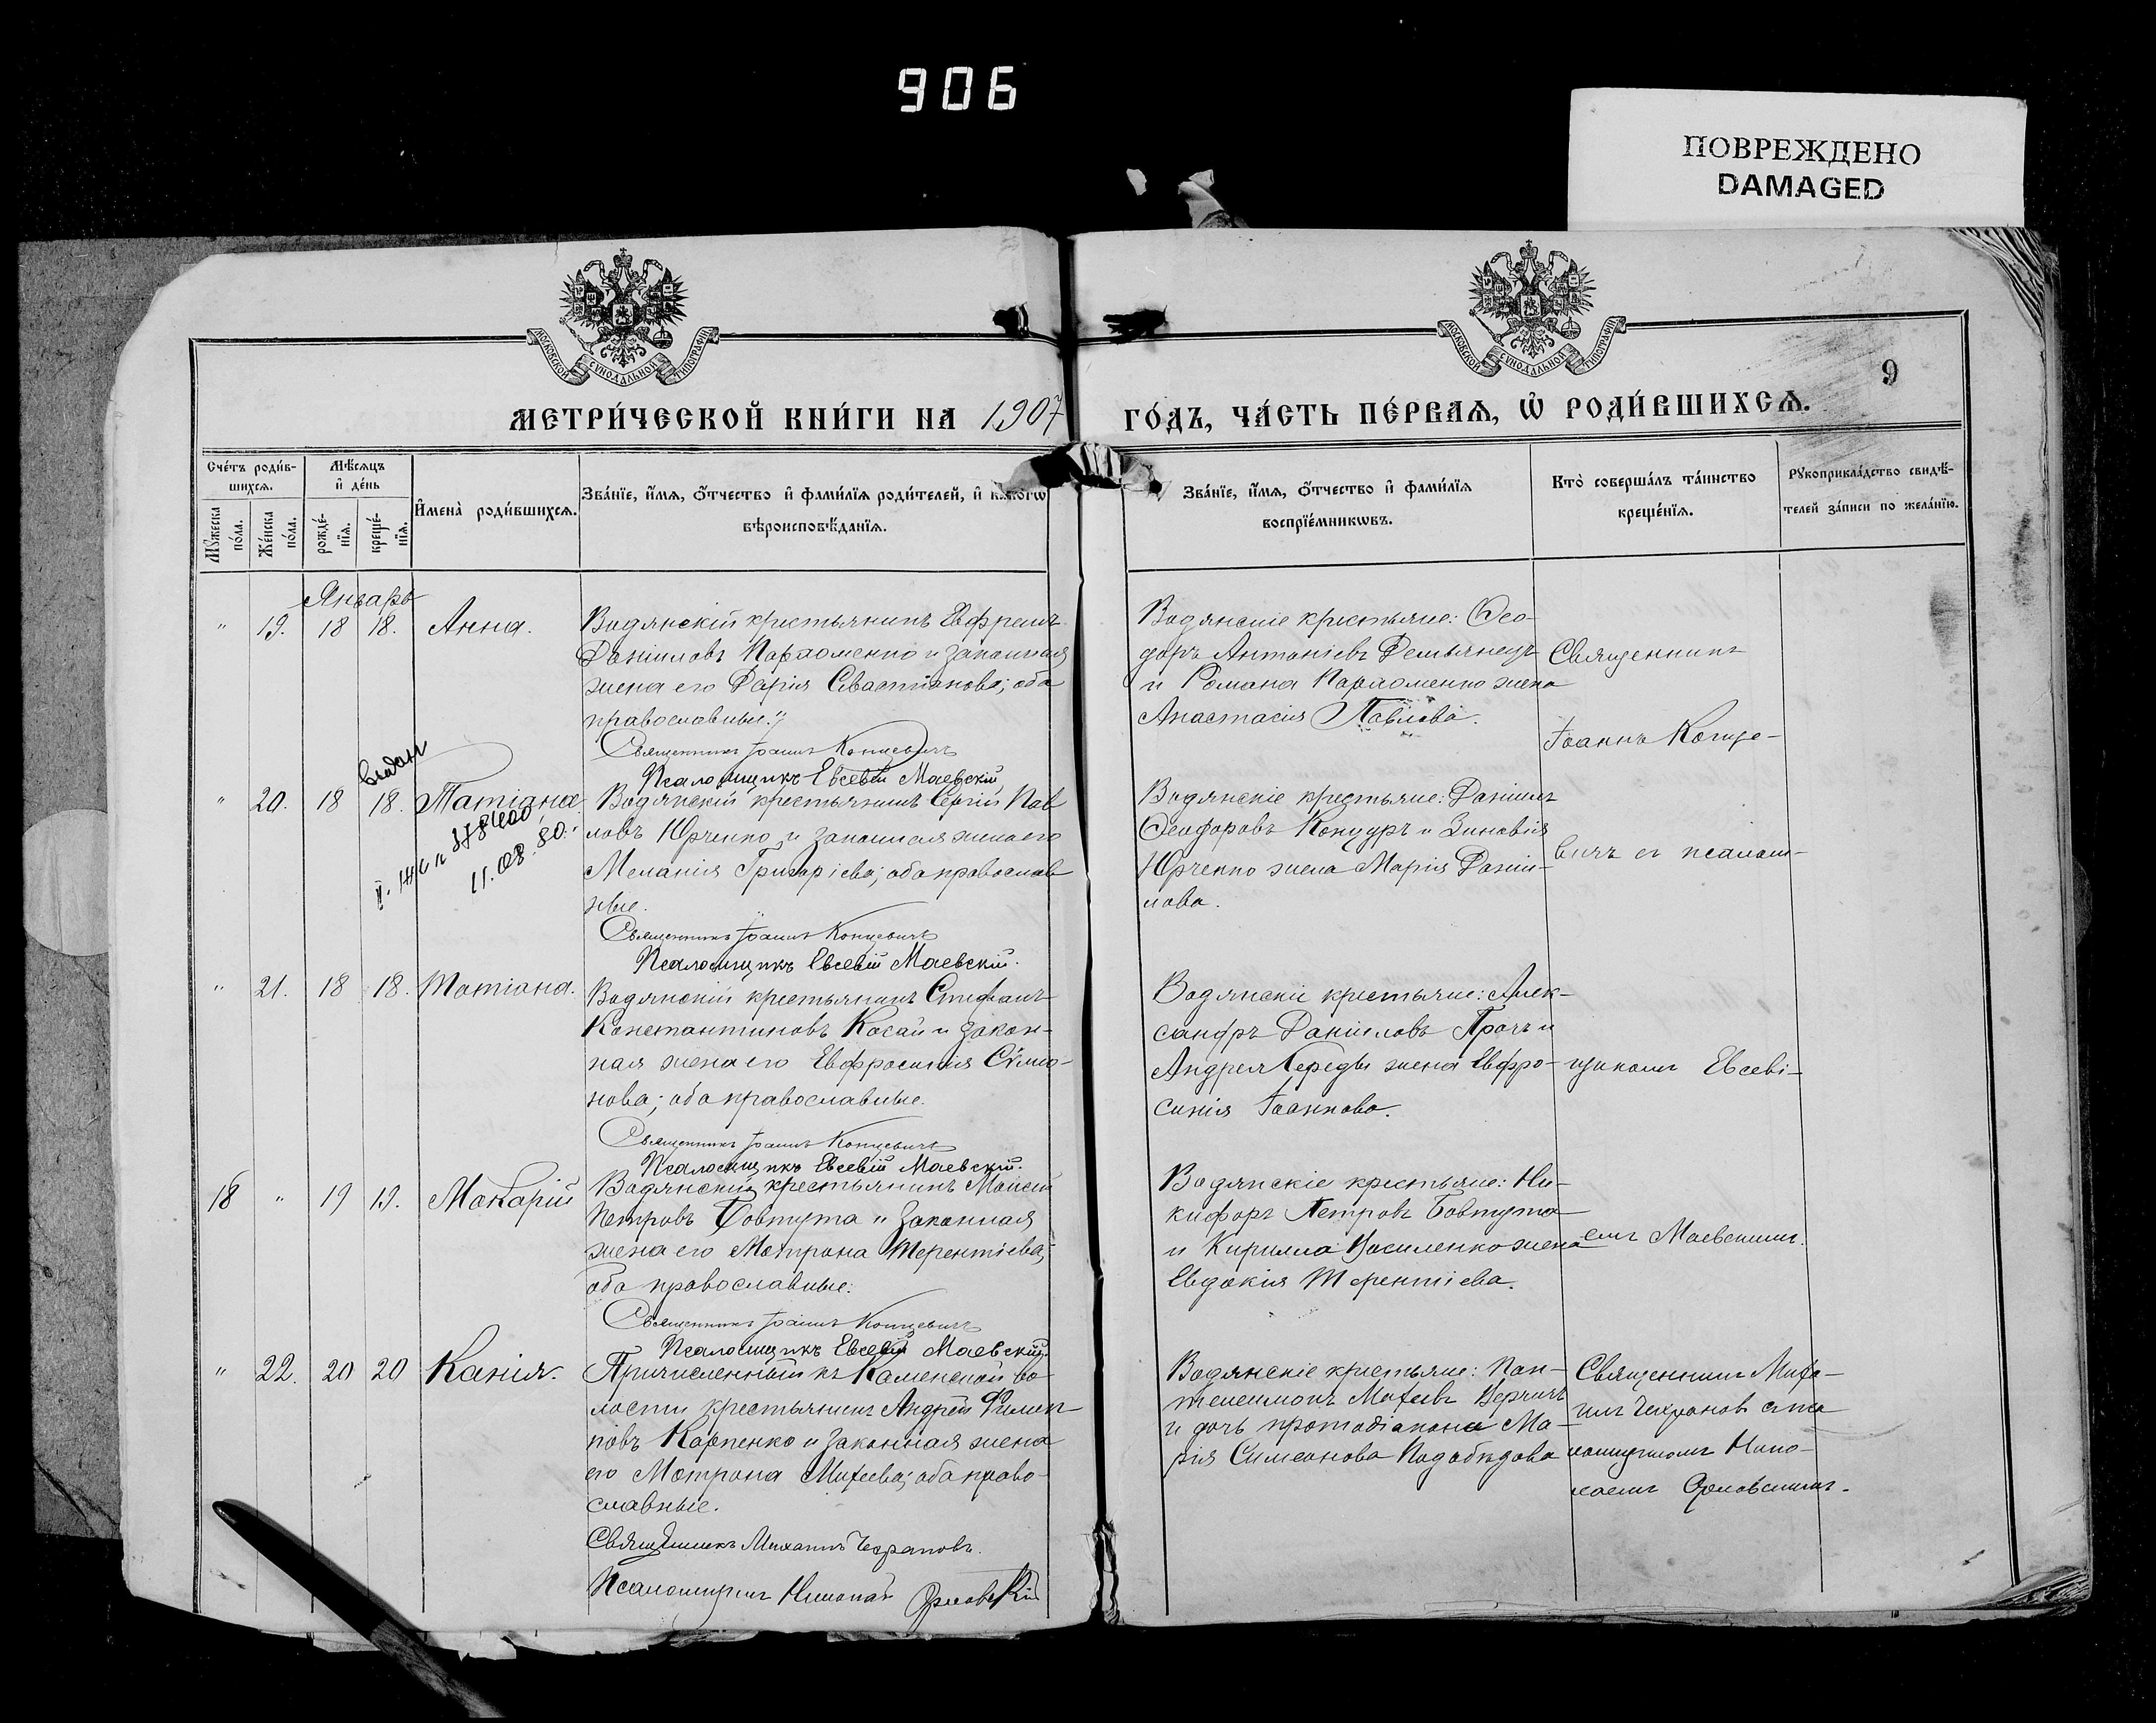 906
ПОВРЕЖДЕНО
DAMAGED
МОСКОВСКОЙ СѴНОДАЛЬНОЙ ТИПОГРАФІИ
МОСКОВСКОЙ СѴНОДАЛЬНОЙ ТИПОГРАФІИ
9
МЕТРИ́ЧЕСКОЙ КНИ́ГИ НА 1907
ГО́ДЪ, ЧА́СТЬ ПЕ́РВАѦ, Ѡ РОДИ́ВШИХСѦ.
Сче́тъ роди́в-
шихсѧ.
Мѣ́сѧцъ
и҆ де́нь
Мꙋжеска по́ла.
Же́нска по́ла.
рожде́-
нїѧ.
креще́-
нїѧ.
И҆мена̀ роди́вшихсѧ.
Зва́нїе, и҆́мѧ, ѻ҆́тчество и҆ фами́лїѧ роди́телей, и҆ какогѡ
вѣроисповѣ́данїѧ.
Зва́нїе, и҆́мѧ, ѻ҆́тчество и҆ фами́лїѧ
воспрїе́мникѡвъ.
Кто̀ соверша́лъ та́инство
креще́нїѧ.
Рꙋкоприкла́дство свидѣ́-
телей за́писи по жела́нїю.
Январь
" 19. 18 18. Анна.
Водянскій крестьянинъ Евфремъ
Даніиловъ Пархоменко и законная
жена его Дарія Севастіанова; оба
православные.
Священникъ Іоаннъ Концевичъ
Псаломщикъ Евсевій Маевскій
Водянскіе крестьяне: Ѳео-
доръ Антоніевъ Демьянецъ
и Романа Пархоменко жена
Анастасія Павлова.
Священникъ
Іоаннъ Конце-
" 20. 18 18. Татіана
11.03.80.
Водянскій крестьянинъ Сергій Пав
ловъ Юрченко и законная жена его
Меланія Григоріева; оба православ
ные.
Священникъ Іоаннъ Концевичъ
Псаломщикъ Евсевій Маевскій.
Водянскіе крестьяне: Даніилъ
Ѳеодоровъ Концуръ и Зиновія
Юрченко жена Марія Дании-
лова.
вичъ съ псалом-
" 21. 18 18. Татіана.
Водянскій крестьянинъ Стефанъ
Константиновъ Косай и закон-
ная жена его Евфросинія Сѵмео-
нова; оба православные.
Священникъ Іоаннъ Концевичъ
Псаломщикъ Евсевій Маевскій.
Водянскіе крестьяне: Алек-
сандръ Даніиловъ Прачъ и
Андрея Середы жена Евфро-
синія Іоаннова.
щикомъ Евсеві-
18 " 19 19. Макарій
Водянскій крестьянинъ Моисей
Петровъ Бовтута и законная
жена его Матрона Терентіева;
оба православные.
Священникъ Іоаннъ Концевичъ
Псаломщикъ Евсевій Маевскій.
Водянскіе крестьяне: Ни-
кифоръ Петровъ Бовтута
и Кирилла Василенко жена
Евдокія Терентіева.
емъ Маевскимъ.
" 22. 20 20 Ксенія.
Причисленный къ Каменской во-
лости крестьянинъ Андрей Филип-
повъ Карпенко и законная жена
его Матрона Михеева; оба право-
славные.
Священникъ Михаилъ Чехрановъ.
Псаломщикъ Николай Орловскій
Водянскіе крестьяне: Пан-
телеимонъ Михеевъ
и дочь протодіакона Ма-
рія Симеонова Подобѣдова
Священникъ Миха-
илъ Чехрановъ съ пса
ломщикомъ Нико-
лаемъ Орловскимъ.